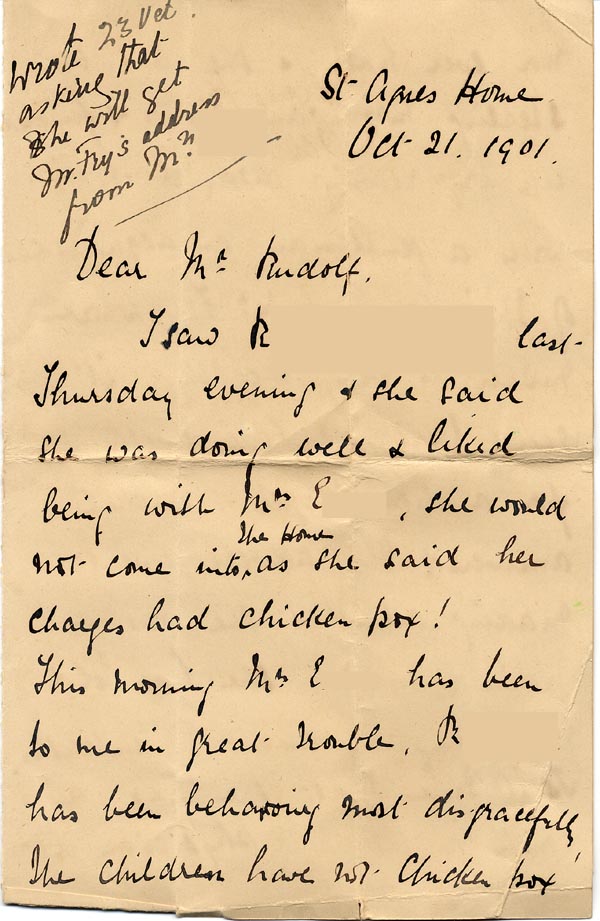 Wrote 23 Oct.
asking that
she will get
Mr. Fry's address
from Mrs
St. Agnes Home
Oct 21. 1901.
Dear Mr. Rudolf.
I saw R last
Thursday evening & she said
she was doing well & liked
being with Mrs E , she would
The Home
not come into, as she said her
charges had chicken pox!
This morning Mrs E has been
to me in great trouble, R
has been behaving most disgracefully,
The children have not chicken pox